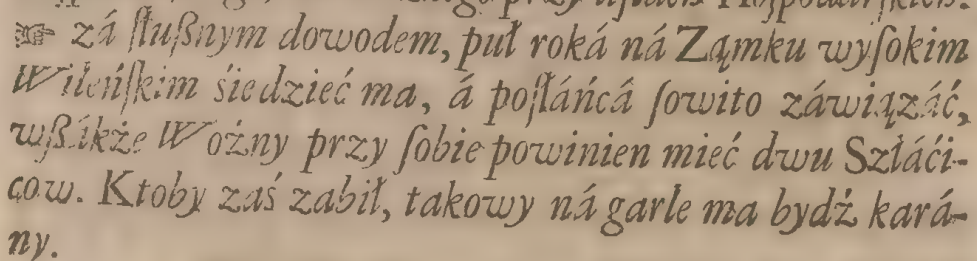 przy
☞ zá ſłuſznym dowodem, puł roká ná Ząmku wyſokim
Wileńſkim śiedzieć ma, á poſłáńcá ſowito záwiązáć,
wßákże Woźny przy ſobie powinien mieć dwu Szláći-
cow. Ktoby zaś zabił, takowy ná garle ma bydź kará-
ny.